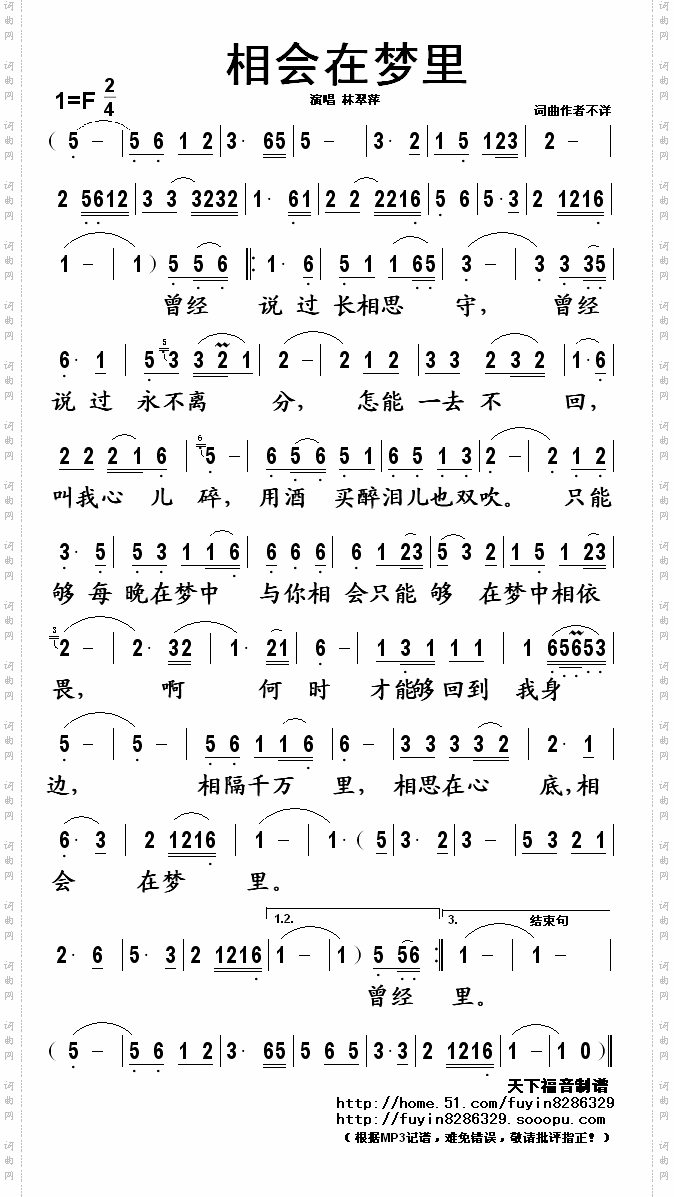 相会在梦里
1=F 2/4
演唱 林翠萍
词曲作者不详
( 5 – | 5 6 1 2 | 3· 65 | 5 – | 3· 2 | 1 5 123 | 2 – |
2 5612 | 3 3 3232 | 1· 61 | 2 2 2216 | 5 6 | 5·3 | 2 1216 |
1 – | 1 ) 5 5 6 ‖: 1· 6 | 5 1 1 65 | 3 – | 3 3 35 |
曾经 说过长相思 守, 曾经
6· 1 | 5 3 3 2 1 | 2 – | 2 1 2 | 3 3 2 3 2 | 1·6 |
说过 永不离 分, 怎能一去不 回,
2 2 2 1 6 | 5 – | 6 5 6 5 1 | 6 5 1 3 | 2 – | 2 1 2 |
叫我心儿碎, 用酒买醉泪儿也双吹。 只能
3· 5 | 5 3 1 1 6 | 6 6 6 | 6 1 23 | 5 3 2 | 1 5 1 23 |
够每晚在梦中 与你相会只能够 在梦中相依
2 – | 2· 32 | 1· 21 | 6 – | 1 3 1 1 1 | 1 65653 |
畏, 啊 何时 才能够回到我身
5 – | 5 – | 5 6 1 1 6 | 6 – | 3 3 3 3 2 | 2· 1 |
边, 相隔千万 里, 相思在心 底,相
6· 3 | 2 1216 | 1 – | 1· ( 5 | 3· 2 | 3 – | 5 3 2 1 |
会 在梦 里。
1.2.
3. 结束句
2· 6 | 5· 3 | 2 1216 | 1 – | 1 ) 5 56 :‖ 1 – | 1 – |
曾经 里。
( 5 – | 5 6 1 2 | 3· 65 | 5 3 | 5 3 | 2 1216 | 1 – | 1 0 )‖
天下福音制谱
http://home.51.com/fuyin8286329
http://fuyin8286329.sooopu.com
(根据MP3记谱,难免错误,敬请批评指正!)
词曲网